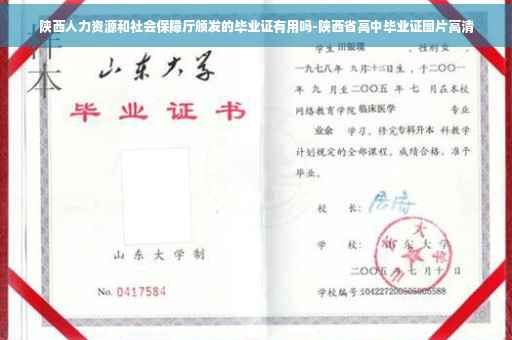 陕西人力资源和社会保障厅颁发的毕业证有用吗-陕西省高中毕业证图片高清
样
本
山东大学
毕业证书
山东大学制
No. 0417584
学生 性别女，
一九七八年 九月十三日生，于二〇〇一
年 九 月至二〇〇五 年 七 月在本校
网络教育学院 临床医学 专业
业余 学习，修完专科升本 科教学
计划规定的全部课程，成绩合格，准予
毕业。
校 长：
学 校： 山东大学
二〇〇五 年 七 月 十 日
学校编号: